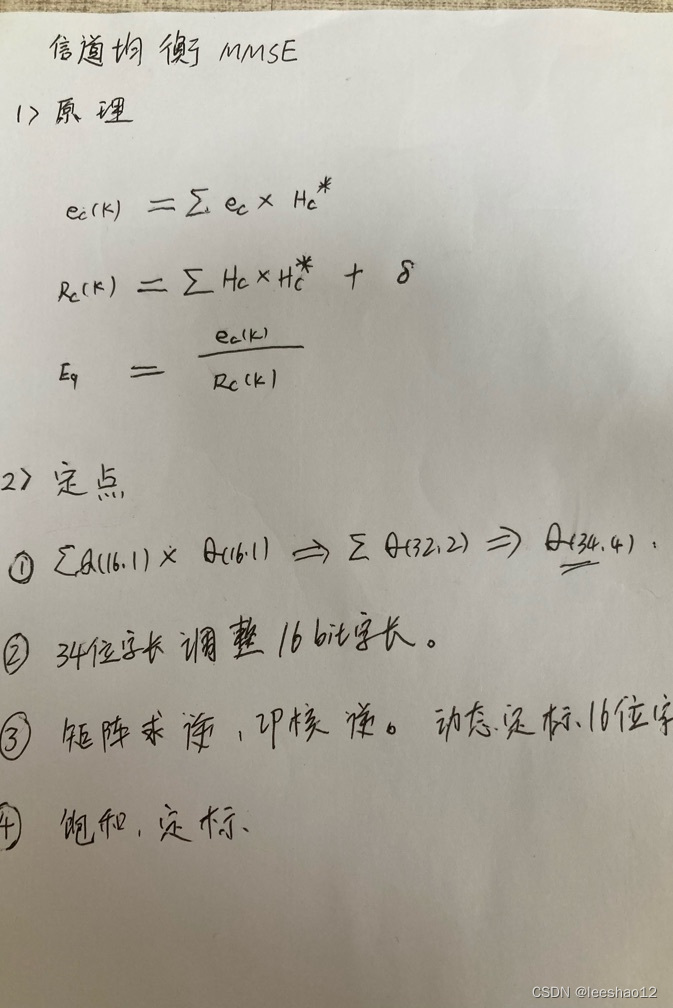 信道均衡 MMSE
1> 原理
ec(k) = Σ ec × Hc*
Rc(k) = Σ Hc × Hc* + δ
Eq = ec(k) / Rc(k)
2> 定点
① ΣQ(16.1) × Q(16.1) ⇒ Σ Q(32.2) ⇒ Q(34.4).
② 34位字长 调整 16 bit字长。
③ 矩阵求逆, 逆。动态定标、16位字
④ 饱和、定标、
CSDN @leeshao12